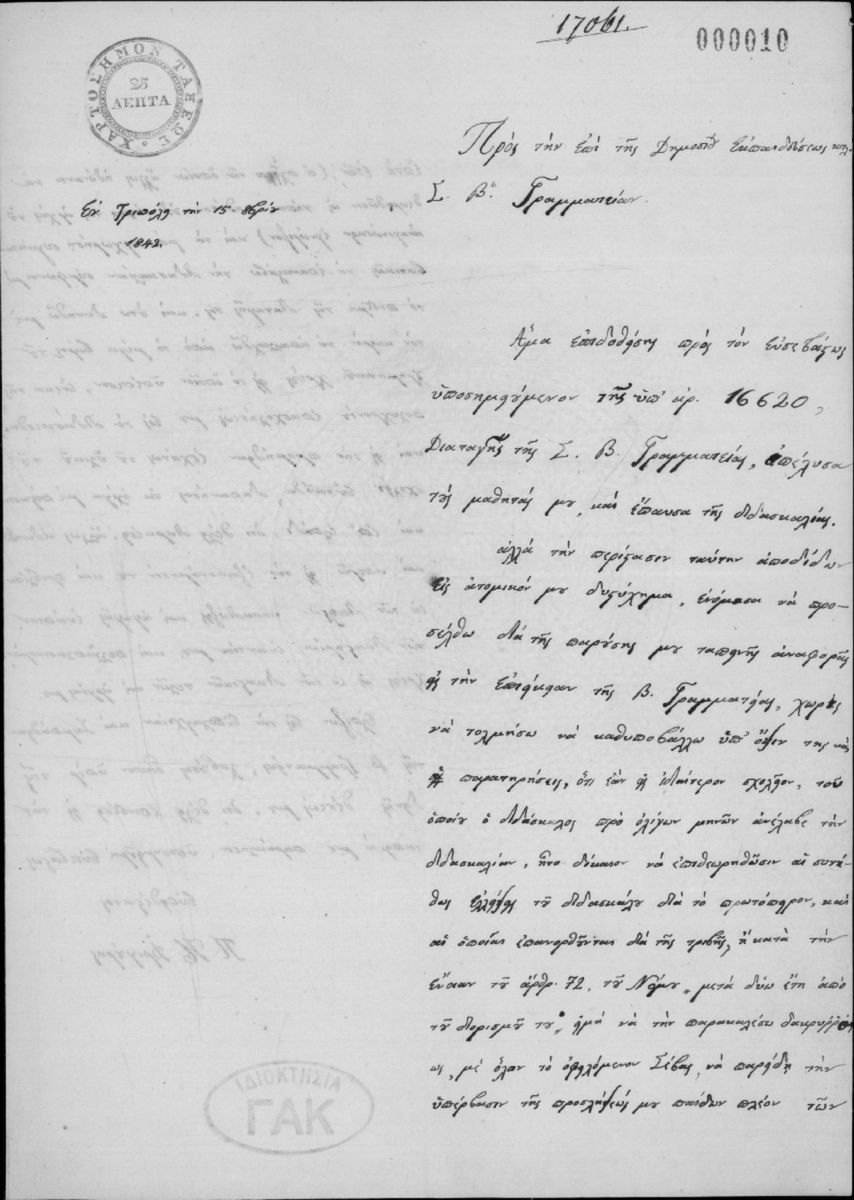 17061.
000010
ΧΑΡΤΟΣΗΜΟΝ ΤΑΞΕΩΣ
25
ΛΕΠΤΑ
Πρὸς τὴν ἐπὶ τῆς Δημοσίου Ἐκπαιδεύσεως κτλ.
Σ. Βην Γραμματείαν.
Ἐν Τριπόλει τὴν 15. 8βρίου
1842.
Ἅμα ἐπιδοθείσης πρὸς τὸν εὐσεβάστως
ὑποσημειούμενον τῆς ὑπ' ἀρ. 16620,
Διαταγῆς τῆς Σ. Β. Γραμματείας, ἀπέλυσα
τοὺς μαθητάς μου, καὶ ἔπαυσα τῆς διδασκαλίας.
ἀλλὰ τὴν περίστασιν ταύτην ἀποδίδων
εἰς ἀτομικόν μου δυστύχημα, ἐνόμισα νὰ προ-
σέλθω διὰ τῆς παρούσης μου ταπεινῆς ἀναφορᾶς
εἰς τὴν ἐπιείκειαν τῆς Β. Γραμματείας, χωρὶς
νὰ τολμήσω νὰ καθυποβάλλω ὑπ' ὄψιν της
παρατηρήσεις, ὅτι ἐὰν εἰς ἰδιαίτερον σχολεῖον, τοῦ
ὁποίου ὁ διδάσκαλος πρὸ ὀλίγων μηνῶν ἀνέλαβε τὴν
διδασκαλίαν, ἦτο δίκαιον νὰ ἐπιθεωρηθῶσιν αἱ συνή-
θεις ἐλλείψεις τοῦ διδασκάλου διὰ τὸ πρωτόπειρον, καὶ
αἱ ὁποῖαι ἐπανορθοῦνται διὰ τῆς τριβῆς, ἢ κατὰ τὴν
ἔννοιαν τοῦ ἄρθρ. 72, τοῦ Νόμου „ μετὰ δύω ἔτη ἀπὸ
τοῦ διορισμοῦ του „ εἰμὴ νὰ τὴν παρακαλέσω
μὲ ὅλον τὸ ὀφειλόμενον Σέβας, νὰ παρείδῃ τὴν
ὑπέρβασιν τῆς προσλήψεώς μου παίδων πλέον τῶν
ΙΔΙΟΚΤΗΣΙΑ
ΓΑΚ